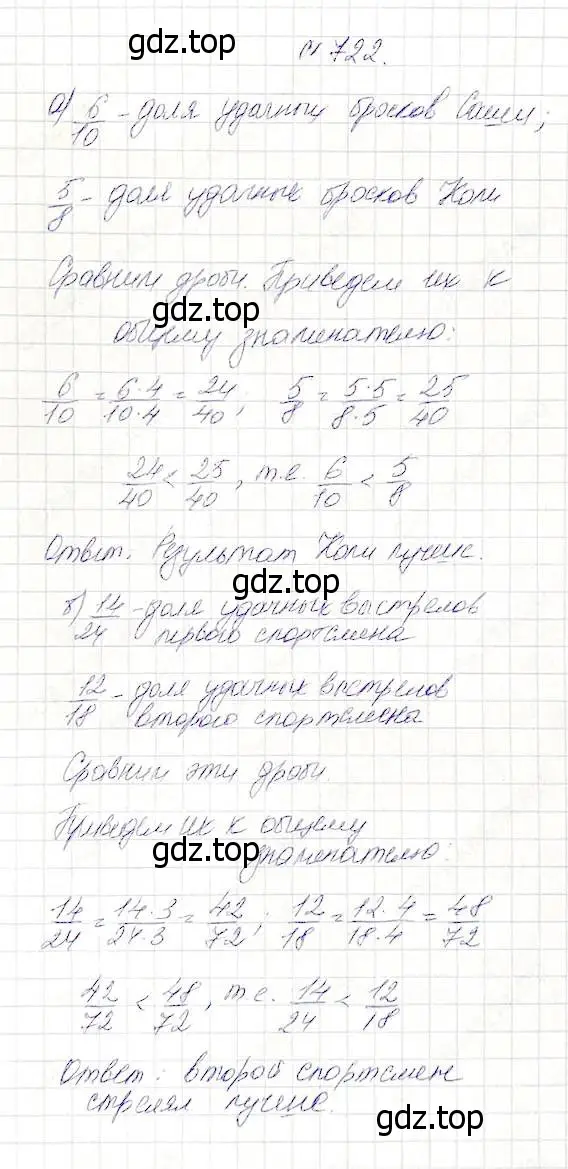 gdz.top
№ 722.
а) 6/10 - доля удачных бросков Саши;
5/8 - доля удачных бросков Коли
Сравним дроби. Приведем их к
gdz.top
общему знаменателю:
6/10 = 6·4/10·4 = 24/40; 5/8 = 5·5/8·5 = 25/40
24/40 < 25/40, т.е. 6/10 < 5/8
Ответ. Результат Коли лучше.
gdz.top
б) 14/24 - доля удачных выстрелов
первого спортсмена
12/18 - доля удачных выстрелов
второго спортсмена
Сравним эти дроби.
Приведем их к общему
gdz.top
знаменателю:
14/24 = 14·3/24·3 = 42/72; 12/18 = 12·4/18·4 = 48/72
42/72 < 48/72, т.е. 14/24 < 12/18
Ответ: второй спортсмен
стрелял лучше.
gdz.top